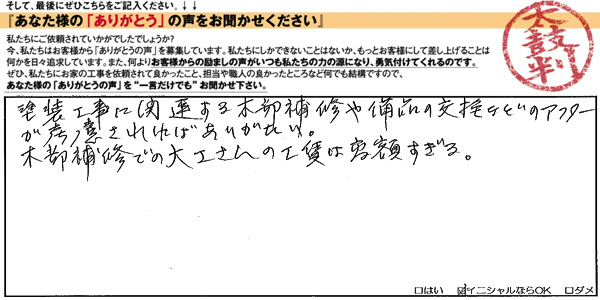 そして、最後にぜひこちらをご記入ください。↓↓↓
『あなた様の「ありがとう」の声をお聞かせください』
私たちにご依頼されていかがでしたでしょうか?
今、私たちはお客様から「ありがとうの声」を募集しています。私たちにしかできないことはないか、もっとお客様にして差し上げることは
何かを日々追求しています。また、何よりお客様からの励ましの声がいつも私たちの力の源になり、勇気付けてくれるのです。
ぜひ、私たちにお家の工事を依頼されて良かったこと、担当や職人の良かったところなど何でも結構ですので、
あなた様の「ありがとうの声」を"一言だけでも"お聞かせ下さい。
太鼓判
塗装工事に関連する木部補修や備品の交換などのアフター
が考慮されればありがたい。
木部補修での大工さんの工賃は高額すぎる。
□はい ☑イニシャルならOK □ダメ